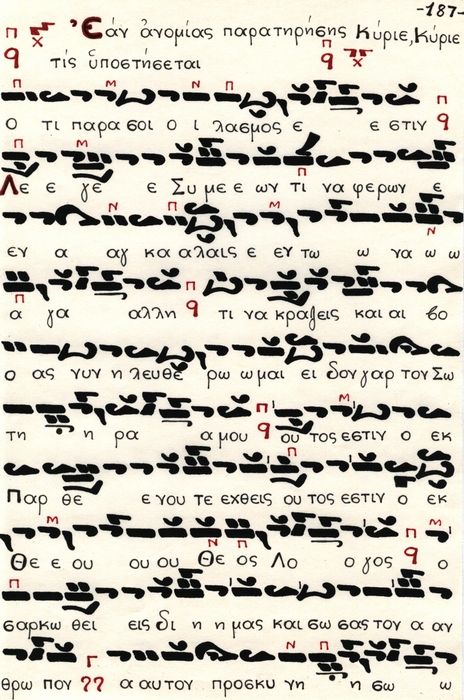 -187-
Ἐάν ἀνομίας παρατηρήσης Κύριε, Κύριε
τίς ὑποστήσεται
ο τι παρα σοι ο ι λασμος ε ε στιν
Λε ε γε ε Συ με ε ων τι να φερων ε
εν α αγ κα αλαις ε εν τω ω να ω ω
α γα αλλη τι να κραζεις και αι βο
ο ας νυν η λευθε ρω ω μαι ει δον γαρ τον Σω
τη η ρα α μου ου τος εστιν ο εκ
Παρ θε ε νου τε χθεις ου τος εστιν ο εκ
Θε ε ου ου ου Θε ος Λο ο γος ο
σαρκω θει εις δι η η μας και σω σας τον α αν
θρω πον α α αυτον προσκυ νη η σω ω